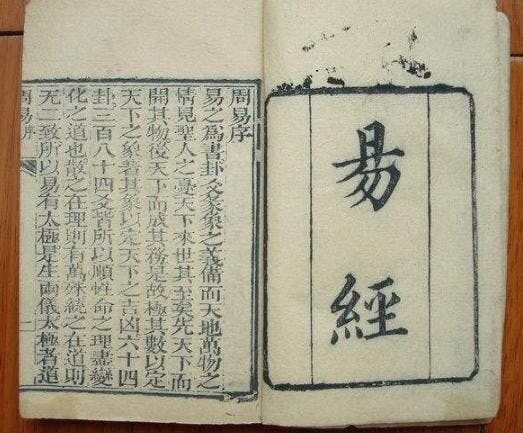 易經
周易序
易之爲書卦爻彖象之義備而天地萬物之
情見聖人之憂天下來世其至矣先天下而
開其物後天下而成其務是故極其數以定
天下之象著其象以定天下之吉凶六十四
卦三百八十四爻皆所以順性命之理盡變
化之道也散之在理則有萬殊統之在道則
无二致所以易有太極是生兩儀太極者道
周易序 一